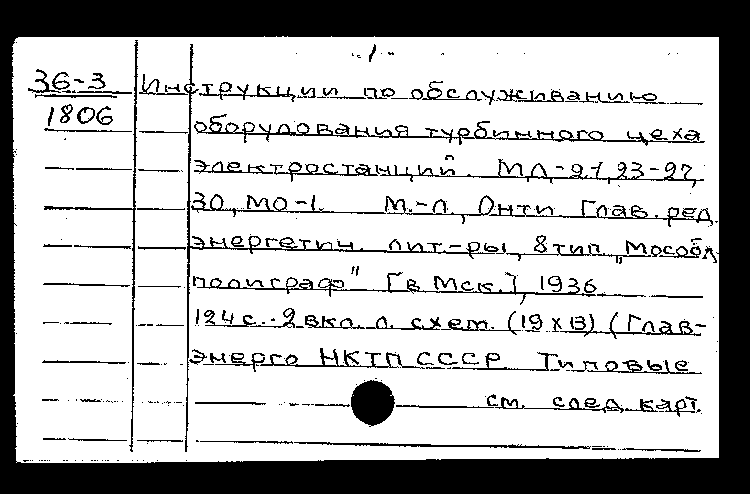 1
36-3 Инструкции по обслуживанию
1806 оборудования турбинного цеха
электростанций. МЛ-21,23-27,
30, МО-1. М.-Л., Онти Глав. ред.
энергетич. лит-ры, 8 тип. „Мособл-
полиграф" [в Мск.], 1936.
124 с. 2 вкл. л. схем. (19х13) (Глав-
энерго НКТП СССР. Типовые
см. след. карт.